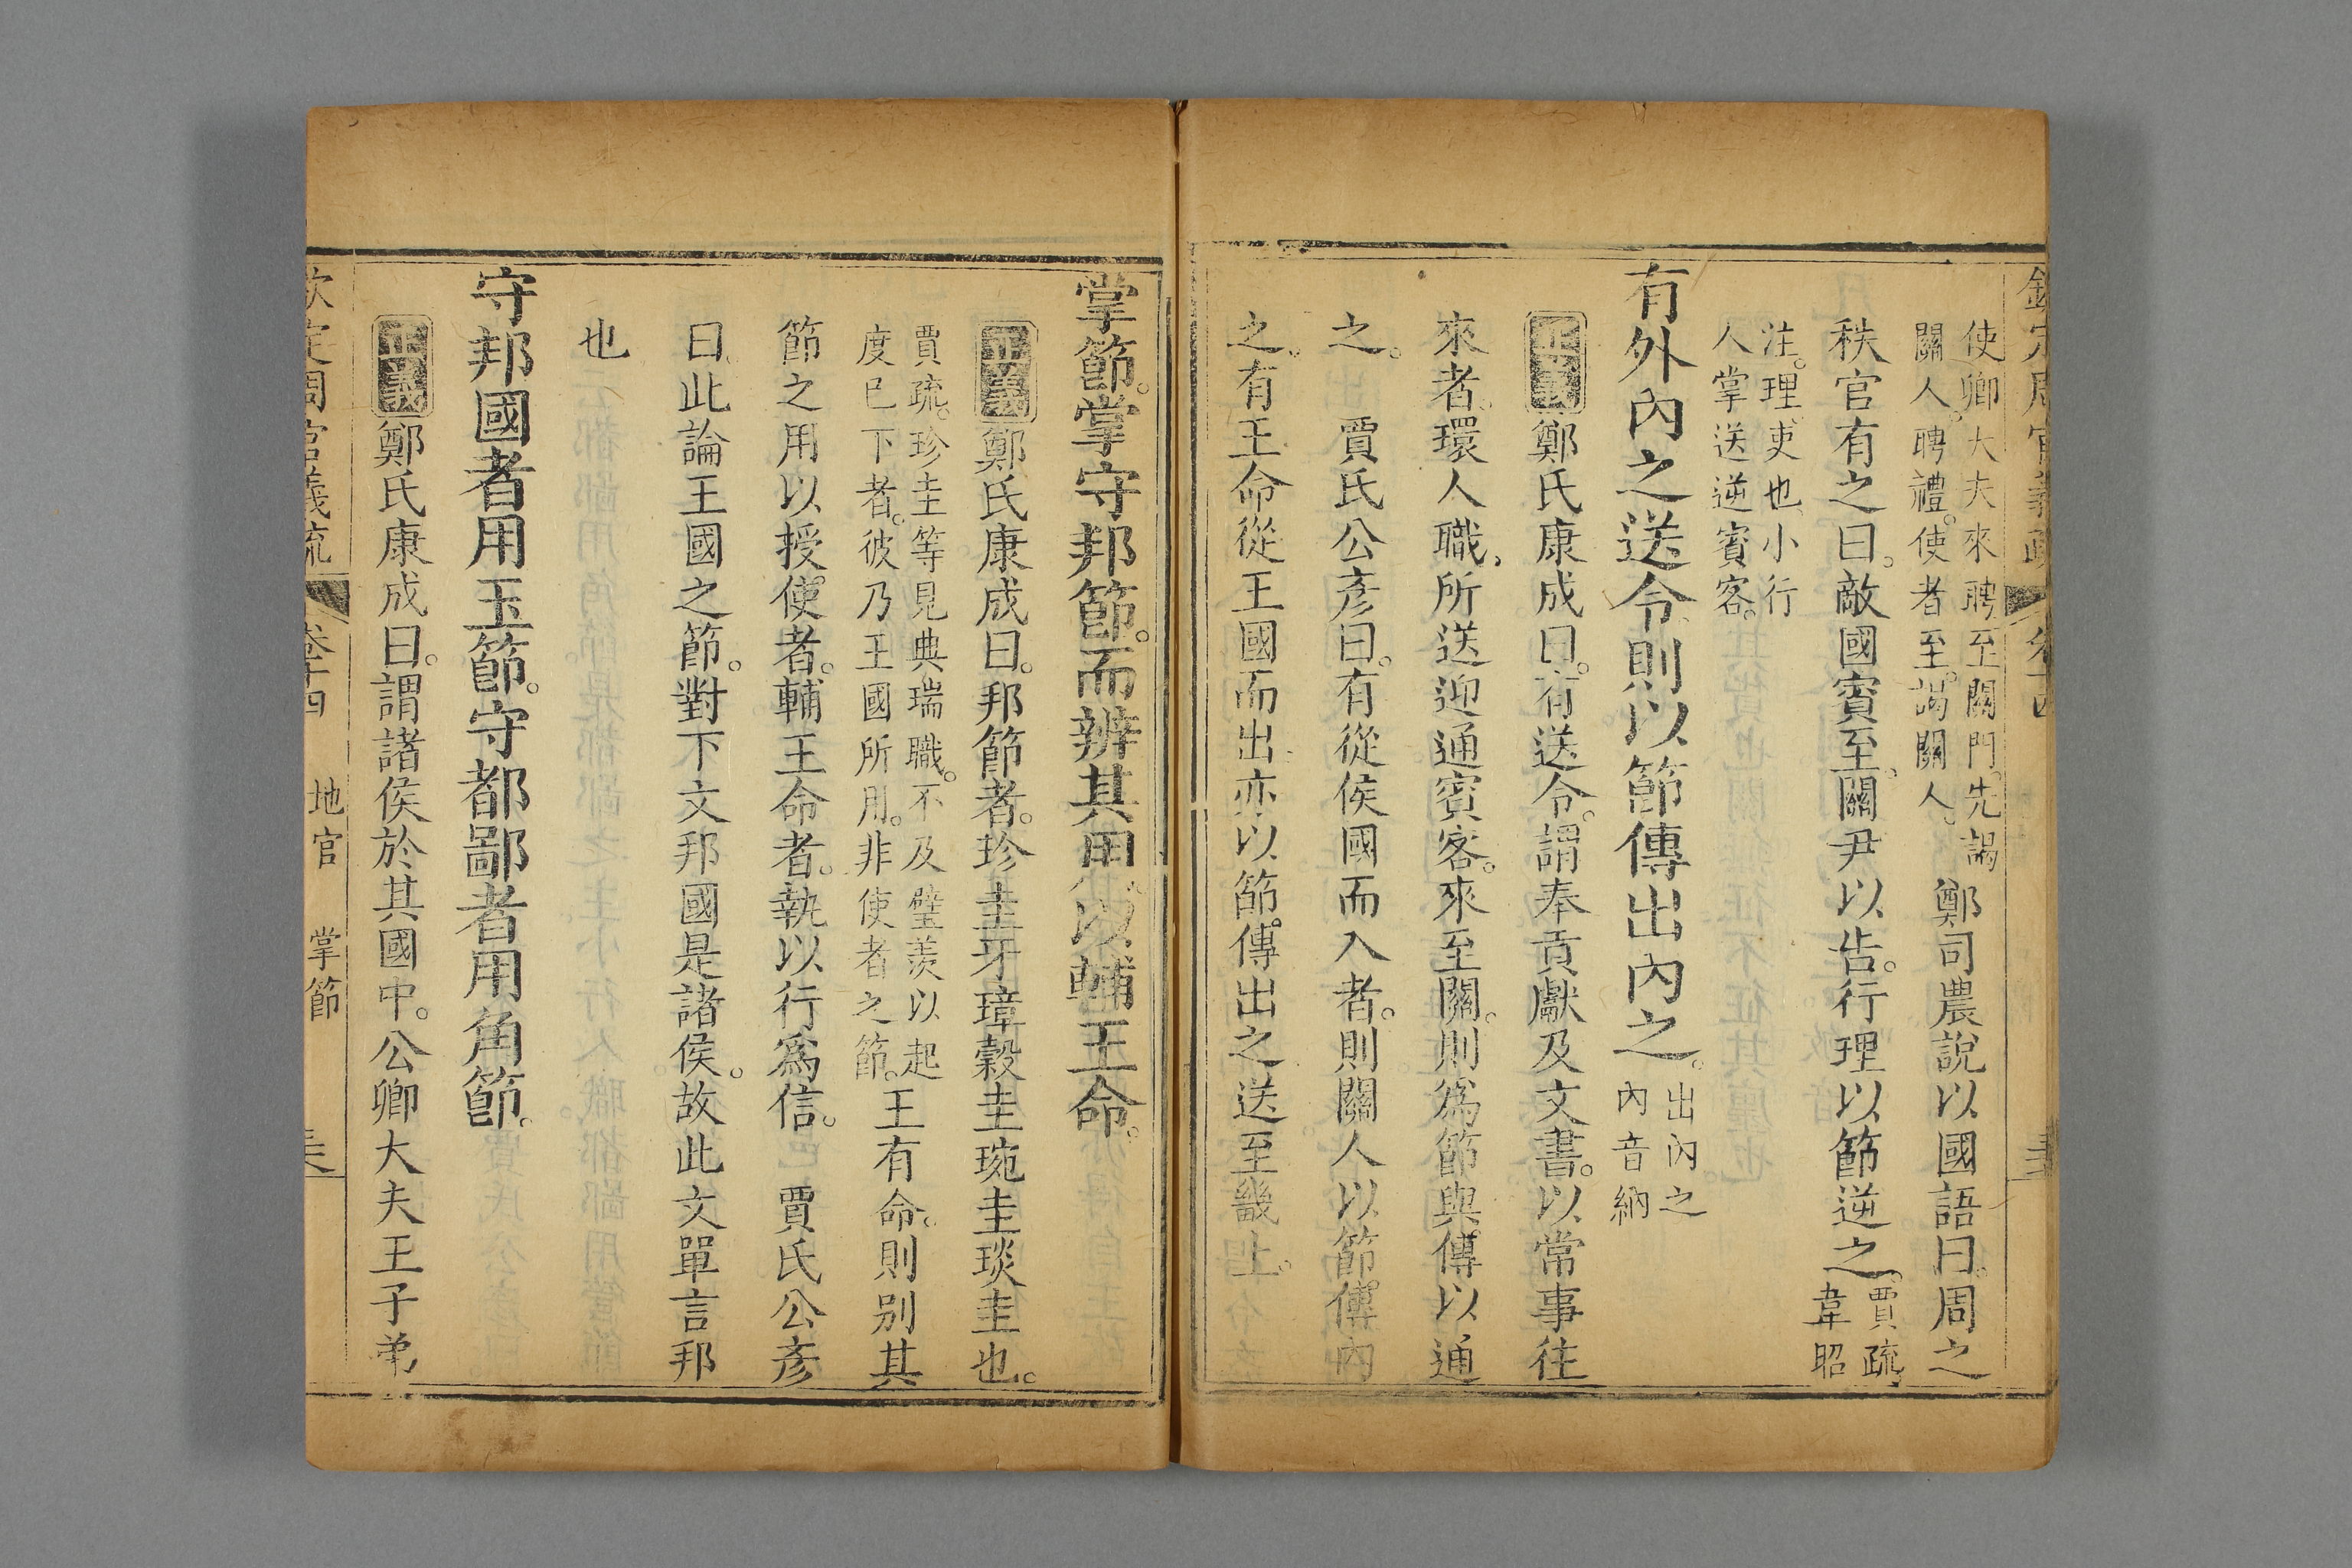 欽定周官義疏 卷十四
使卿大夫來聘至關門。先謁
關人。聘禮。使者至。謁關人。
鄭司農說以國語曰。周之
秩官有之曰。敵國賓至。關尹以告。行理以節逆之。
賈疏。
韋昭
注。理、吏也、小行
人掌送逆賓客。
有外內之送令則以節傳出內之。
出內之
內音納
正義鄭氏康成曰。有送令。謂奉貢獻及文書。以常事往
來者。環人職、所送迎通賓客。來至關。則為節與傳以通
之。 賈氏公彥曰。有從侯國而入者。則關人以節傳內
之。有王命從王國而出亦以節。傳出之送至畿上。
掌節。掌守邦節。而辨其用。以輔王命。
正義鄭氏康成曰。邦節者。珍圭牙璋穀圭琬圭琰圭也。
賈疏。珍圭等見典瑞職。不及璧羨以起
度已下者。彼乃王國所用。非使者之節。
王有命。則別其
節之用以授使者。輔王命者。執以行爲信。 賈氏公彥
曰。此論王國之節。對下文邦國是諸侯。故此文單言邦
也
守邦國者用玉節。守都鄙者用角節。
正義鄭氏康成曰。謂諸侯於其國中。公卿大夫王子弟
欽定周官義疏 卷十四 地官 掌節